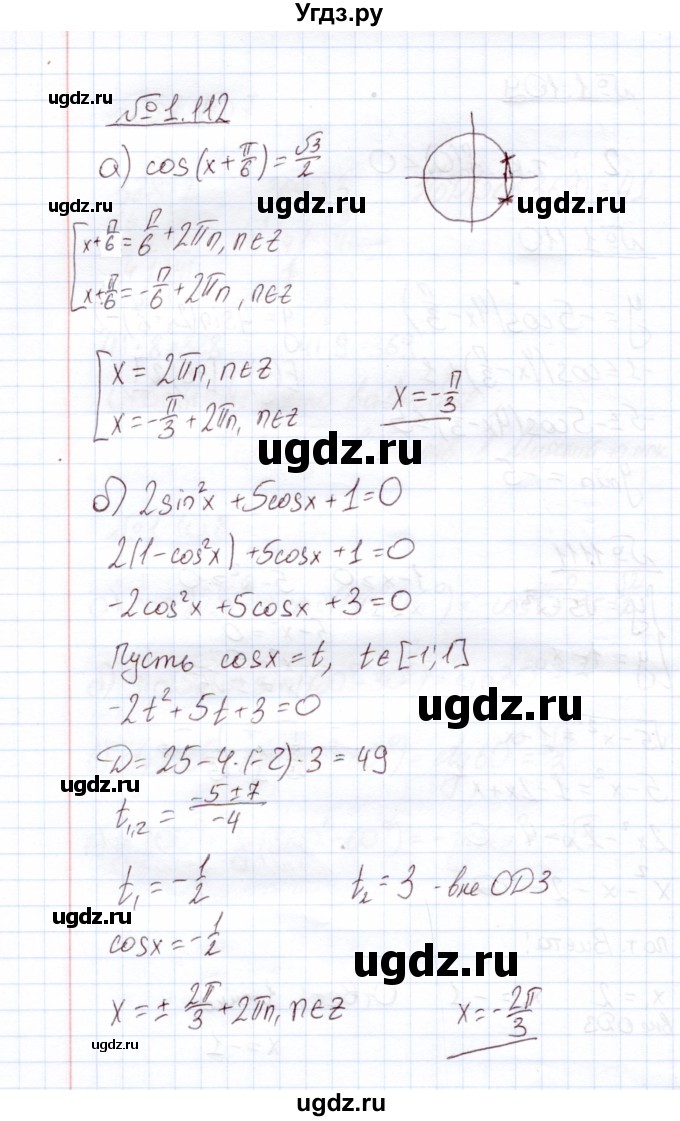 Угдз.ру
ugdz.ru
№1.112
а) cos(x+π/6)=√3/2
ugdz.ru
ugdz.ru
x+π/6=π/6+2πn, n∈Z
x+π/6=-π/6+2πn, n∈Z
ugdz.ru
x=2πn, n∈Z
x=-π/3+2πn, n∈Z
x=-π/3
ugdz.ru
б) 2sin²x+5cosx+1=0
2(1-cos²x)+5cosx+1=0
ugdz.ru
-2cos²x+5cosx+3=0
Пусть cosx=t, t∈[-1;1]
-2t²+5t+3=0
ugdz.ru
D=25-4·(-2)·3=49
ugdz.ru
t₁,₂=(-5±7)/-4
t₁=-1/2
t₂=3 - вне ОДЗ
ugdz.ru
cosx=-1/2
ugdz.ru
x=±2π/3+2πn, n∈Z
x=-2π/3
ugdz.ru
ugdz.ru